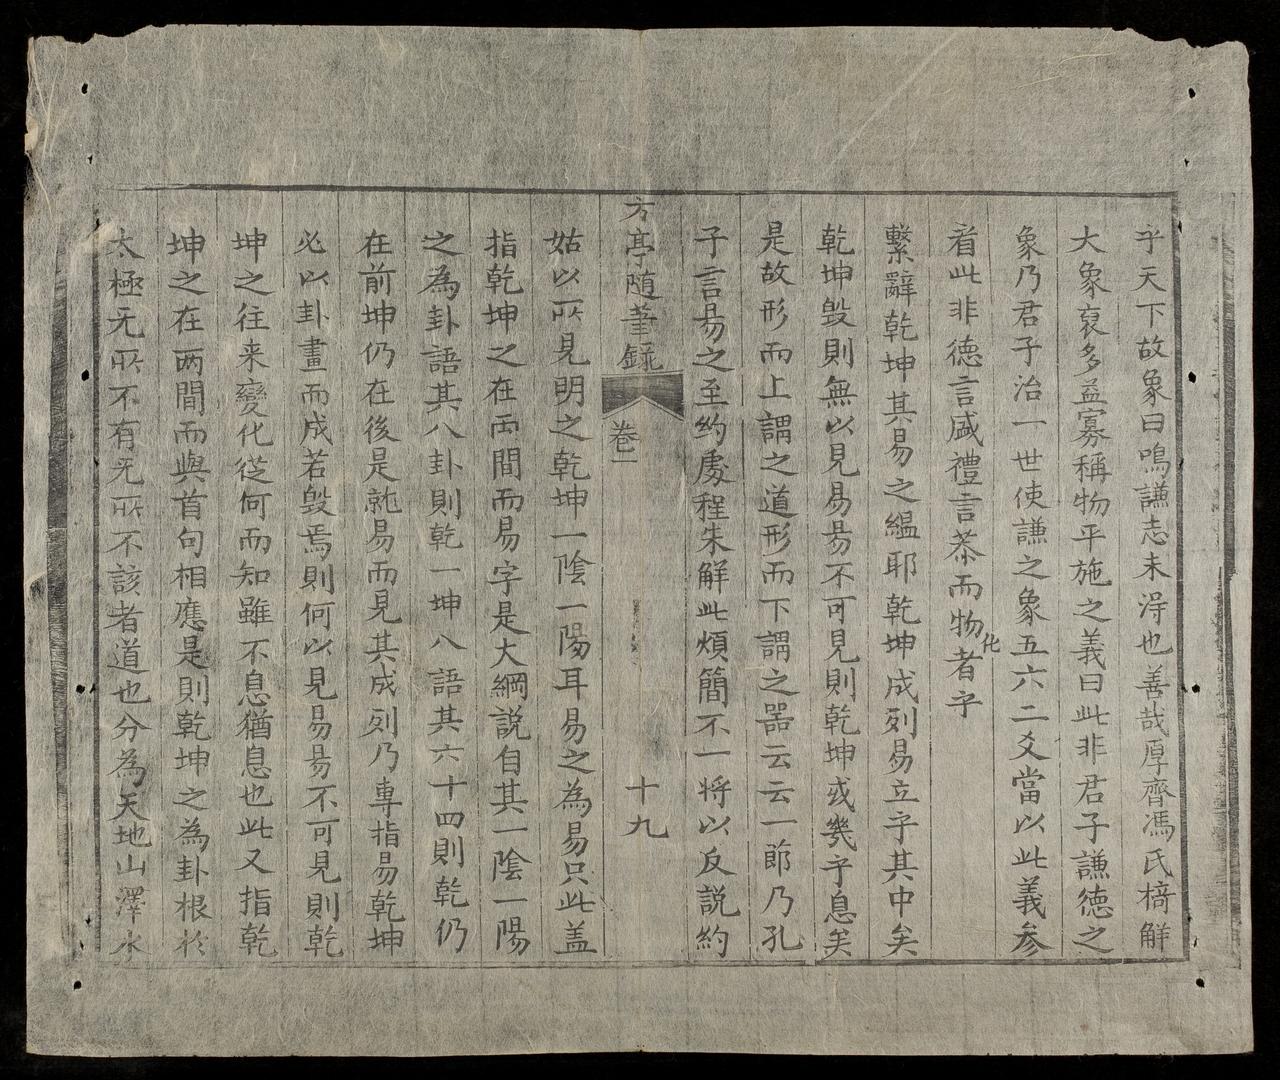 乎天下故象曰鳴謙志未淂也善哉厚齋馮氏椅觧
大象裒多益寡稱物平施之義曰此非君子謙徳之
象乃君子治一世使謙之象五六二爻當以此義参
㸔此非德言盛禮言恭而物化者乎
繫辭乾坤其易之緼耶乾坤成列易立乎其中矣
乾坤毁則無以見易易不可見則乾坤或幾乎息矣
是故形而上謂之道形而下謂之噐云云一節乃孔
子言易之至約處程朱觧此煩簡不一將以反説約
方亭随筆錄 卷一 十九
姑以所見明之乾坤一陰一陽耳易之為易只此盖
指乾坤之在両間而易字是大綱說自其一陰一陽
之為卦語其八卦則乾一坤八語其六十四則乾仍
在前坤仍在後是就易而見其成列乃專指易乾坤
必以卦畫而成若毁焉則何以見易易不可見則乾
坤之往来變化從何而知雖不息猶息也此又指乾
坤之在两間而與首句相應是則乾坤之為卦根於
太極无所不有无所不該者道也分為天地山澤水